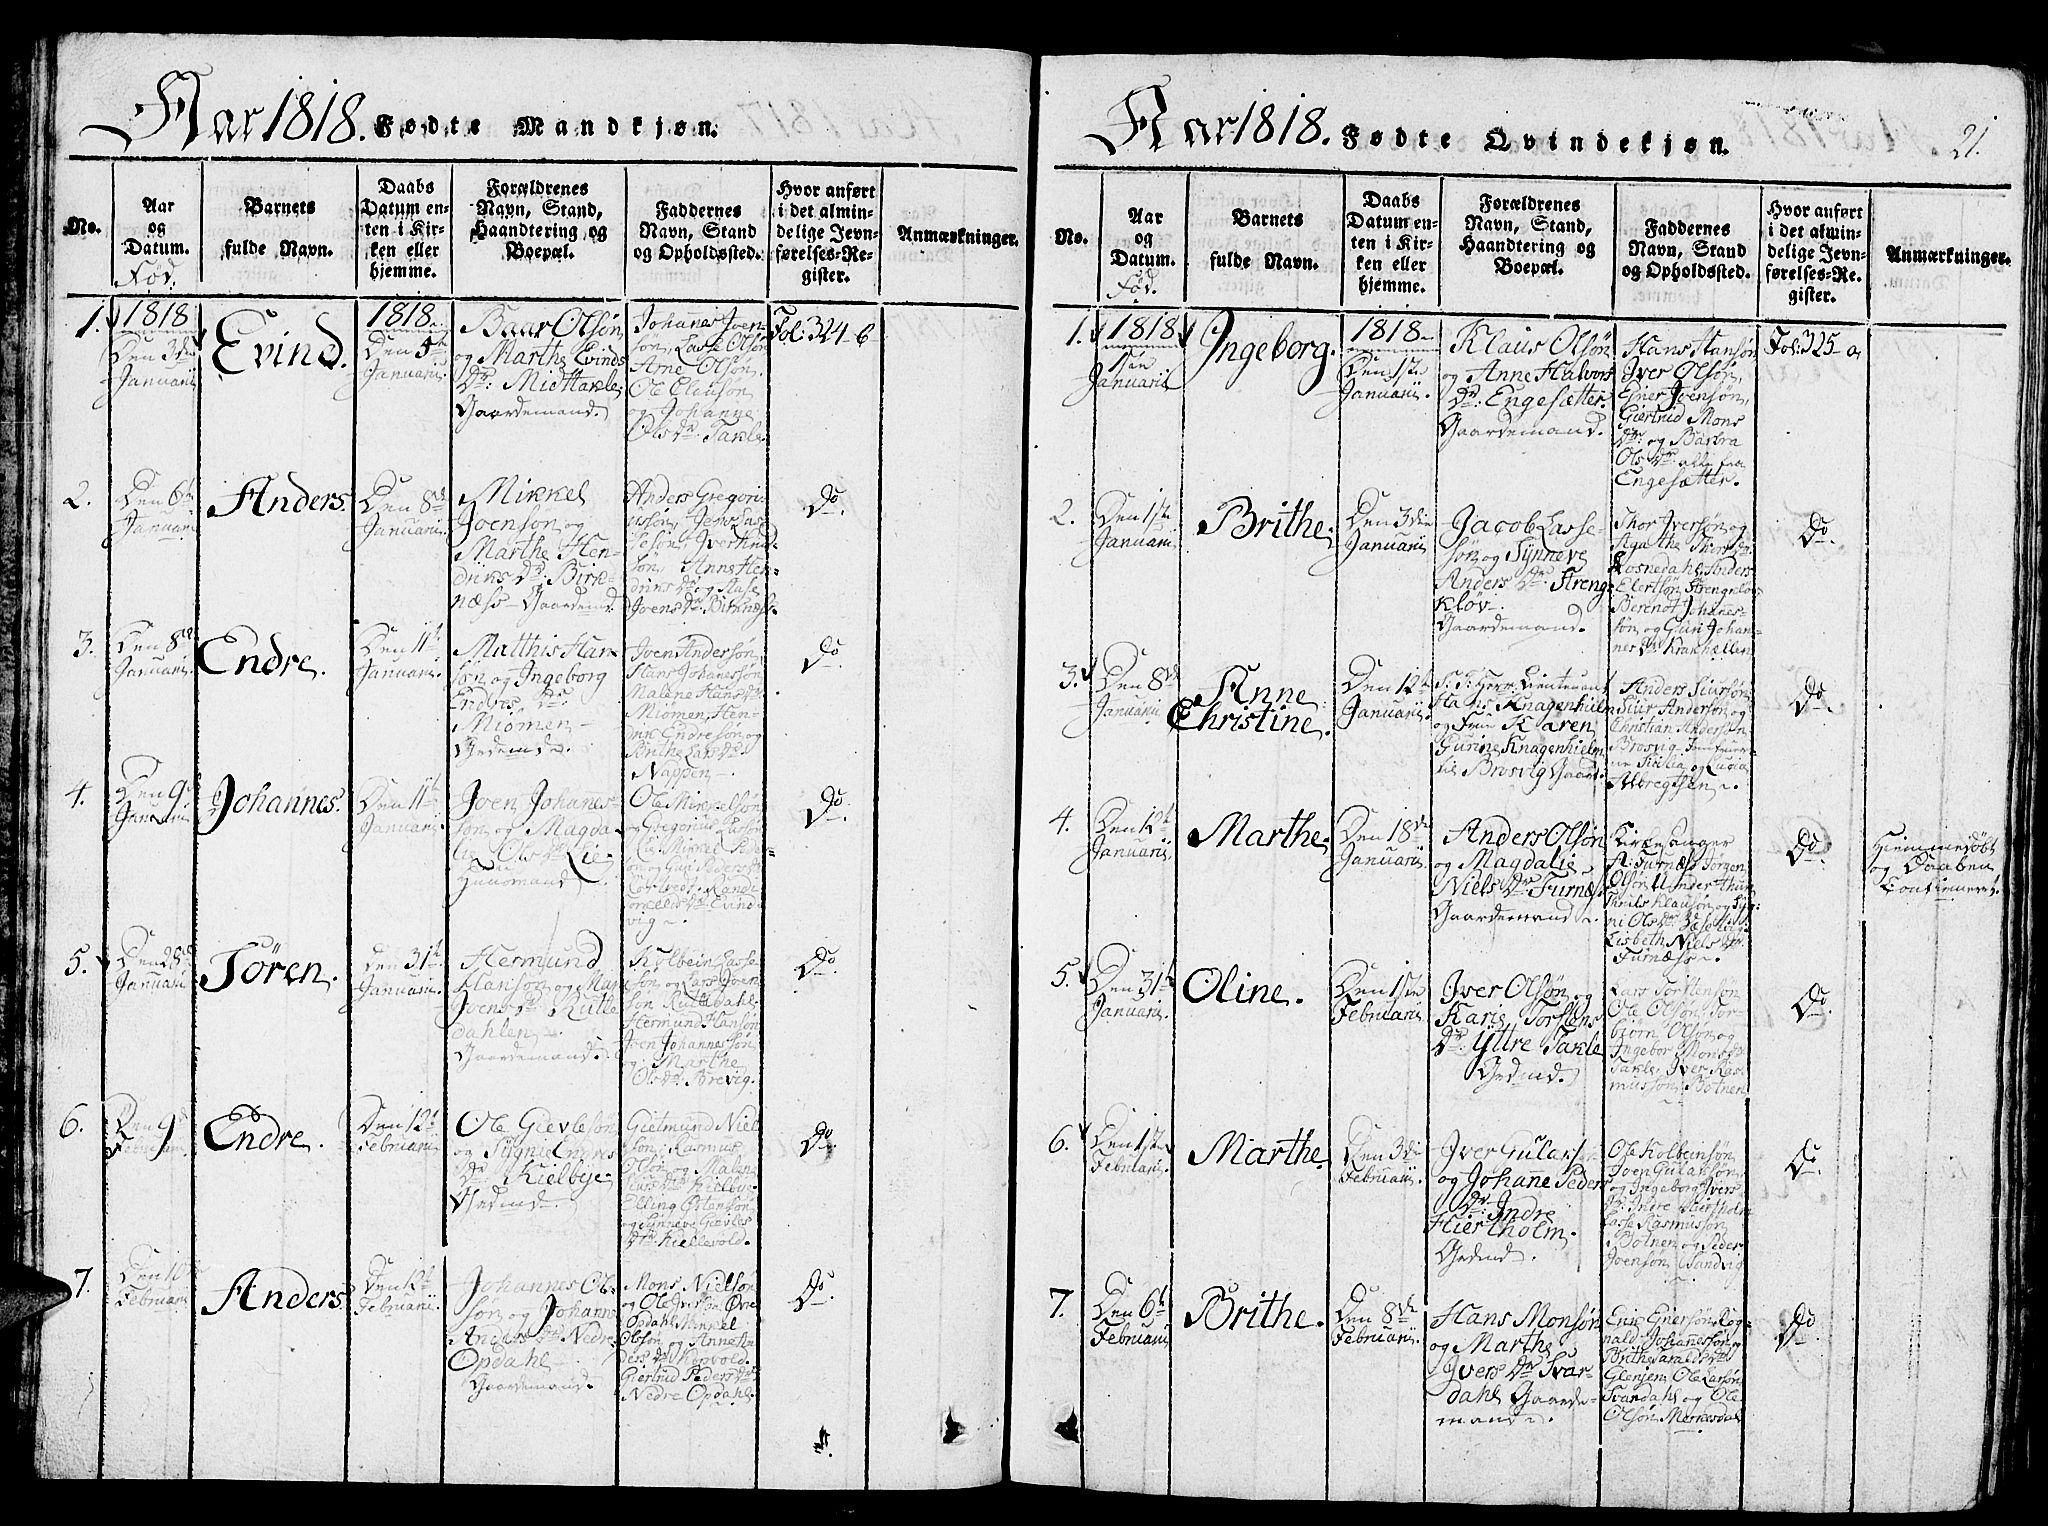 Aar 1818. Fødte Mandkjøn.
No.
Aar
og
Datum.
Fød.
Barnets
fulde Navn.
Daabs
Datum en-
ten i Kir-
ken eller
hjemme.
Forældrenes
Navn, Stand,
Haandtering og
Boepæl.
Faddernes
Navn, Stand
og Opholdssted.
Hvor anført
i det almin-
delige Jevn-
førelses-Re-
gister.
Anmærkninger.
1.
1818
Den 3die
Januarii
Evind.
1818.
Den 5te
Januarii.
Baar Olsøn
og Marthe Evinds
Dr: Mid Takle
Gaardemand.
Johannes Joen-
søn, Lasse Olsøn
Arne Olsøn,
Ole Clausøn
og Johanne
Olsdr. Takle
Fol: 324-b
2.
Den 6te
Januarii
Anders.
Den 8de
Januarii.
Mikkel
Joensøn og
Marthe Hen-
driks Dr: Birk-
næss - Gaardemd.
Anders Gregori-
ussøn, Jens Las-
sesøn,
søn, Anne Hen-
driks dr og
Joens Dr Birknæss.
Do
3.
Den 8de
Januarii
Endre.
Den 11te
Januarii.
Matthis Han-
søn og Ingeborg
Endres Dr
Miømen -
Gedemd.
Joen Andersøn,
Hans Johanesøn
Malene Hans dr
Miømen, Hen-
rik Endresøn og
Brithe Lars dr
Nappen -.
Do
4.
Den 9de
Januarii
Johannes.
Den 11te
Januarii.
Joen Johanes-
søn og Magda-
li Ols dr Lie
Huusmand.
Ole Mikkelsøn
og Gregorius Lassøn
Lie, Mikkel Peder-
søn og Guri Peders dr
Evind-
vig -.
Do
5.
Den 28de
Januarii
Tören.
den 31te
Januarii.
Hermund
Hansøn og
Joens dr Rutle
dahlen -.
Gaardemand.
Kolbein Lasse-
søn og Lars Joen-
søn Rutledahl.
Hermund Hansøn
Joen Johannessøn
og Marthe
Ols dr Brevig.
Do
6.
Den 9de
Februarii
Endre.
Den 12te
Februarii
Ole Gievlesøn
og Signi Endres
Dr Kielbye
Gedmd.
Gietmund Niel-
søn, Rasmus
Olsøn og Malene
Elling Østensøn
og Synneve Gievles
Dr. Kiellevold.
Do
7.
Den 10de
Februarii
Anders.
Den 12te
Februarii.
Johannes Ole-
søn og Johanne
Anders Dr Nedre
Opdahl -
Gaardemand.
Mons Nielsøn
og Ole Iversøn Øvre
Opdahl, Mikkel
Olsøn og Anne An-
ders dr
Giertrud Peders dr
Nedre Opdahl.
Do
Aar 1818. Fødte Qvindekjøn.
21.
No.
Aar
og
Datum.
Fød.
Barnets
fulde Navn.
Daabs
Datum en-
ten i Kir-
ken eller
hjemme.
Forældrenes
Navn, Stand,
Haandtering og
Boepæl.
Faddernes
Navn, Stand
og Opholdssted.
Hvor anført
i det almin-
delige Jevn-
førelses-Re-
gister.
Anmærkninger.
1.
1818
1ste
Januarii
Ingeborg.
1818.
Den 1ste
Januarii.
Klaus Olsøn
og Anne Halvors
Dr: Engesætter.
Gaardemand.
Hans Hansøn
Iver Olsøn,
Ejner Joensøn,
Giertrud Mons
Dr: og Barbra
Ols Dr. alle fra
Engesætter.
Fol: 325-a
2.
Den 1ste
Januarii
Brithe.
Den 3die
Januarii
Jacob Lasse-
søn og Synneve
Anders Dr Streng-
kløv -.
Gaardemand.
Thor Iversøn og
Agathe
Losnedahl, Anders
Elertsøn Strengkløv
Berendt Johannes-
søn og Guri Johan-
nes dr Krakhellen
Do
3.
Den 8de
Januarii
Anne
Christine.
Den 12te
Januarii.
S. T. Herr Lieutenant
Hans Knagenhielm
og Frue Karen
Gurine Knagenhielm
til Brosvig Gaard
Anders Siursøn
Siur Andersøn og
Christian Andersøn
Brosvig
Albregtsen -.
Do
4.
Den 12te
Januarii
Marthe.
Den 18de
Januarii.
Anders Olsøn
og Magdalie
Niels Dr Furnæss
Gaardemand.
Kirkesanger
A: Furnæss, Jörgen
Olsøn
Lisbeth Niels Dr.
Furnæss -.
Do
Hiemmedøbt
og Daaben
Confirmeret.
5.
Den 31te
Januarii.
Oline.
Den 1ste
Februarii
Iver Olsøn og
Karie Torstens
Dr Yttre Takle
Gedmd.
Lars Torstensøn
Ole Olsøn, Tor-
biørn Olsøn og
Ingebor Mons dr
Takle, Iver Ras-
mussøn, Botnen
Do
6.
Den 1ste
Februarii.
Marthe.
Den 3die
Februarii.
Iver Gularsøn
og Johanne Peders
Dr. Indre
Hiertholm.
Gedmd.
Ole Kolbeinsøn,
Joen Gularsøn,
og Ingeborg Ivers
Dr. Indre Hiertholm
Lasse Rasmussøn
Botnen og Peder
Joensøn Sandvig
Do.
7.
Den 6te
Februarii
Brithe.
Den 8de
Februarii.
Hans Monsøn
og Marthe
Ivers Dr Svar-
dahl Gaarde-
mand.
Eric Enersøn, Rog-
nald Johannessøn og
Brithe Haralds dr
Glenjen, Ole Larsøn
Svardahl og Ole
Olsøn
Do